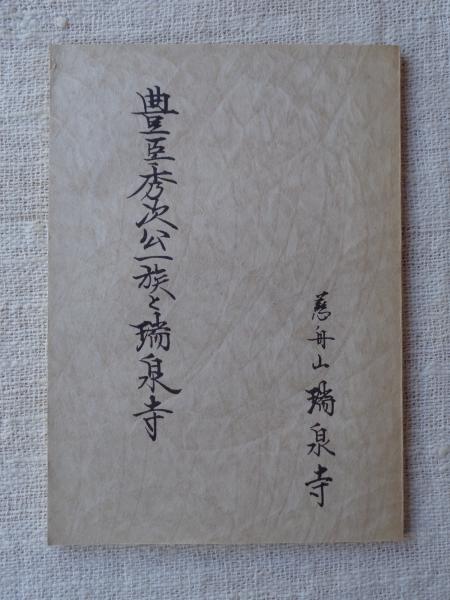 豊臣秀次公一族と瑞泉寺
慈舟山 瑞泉寺